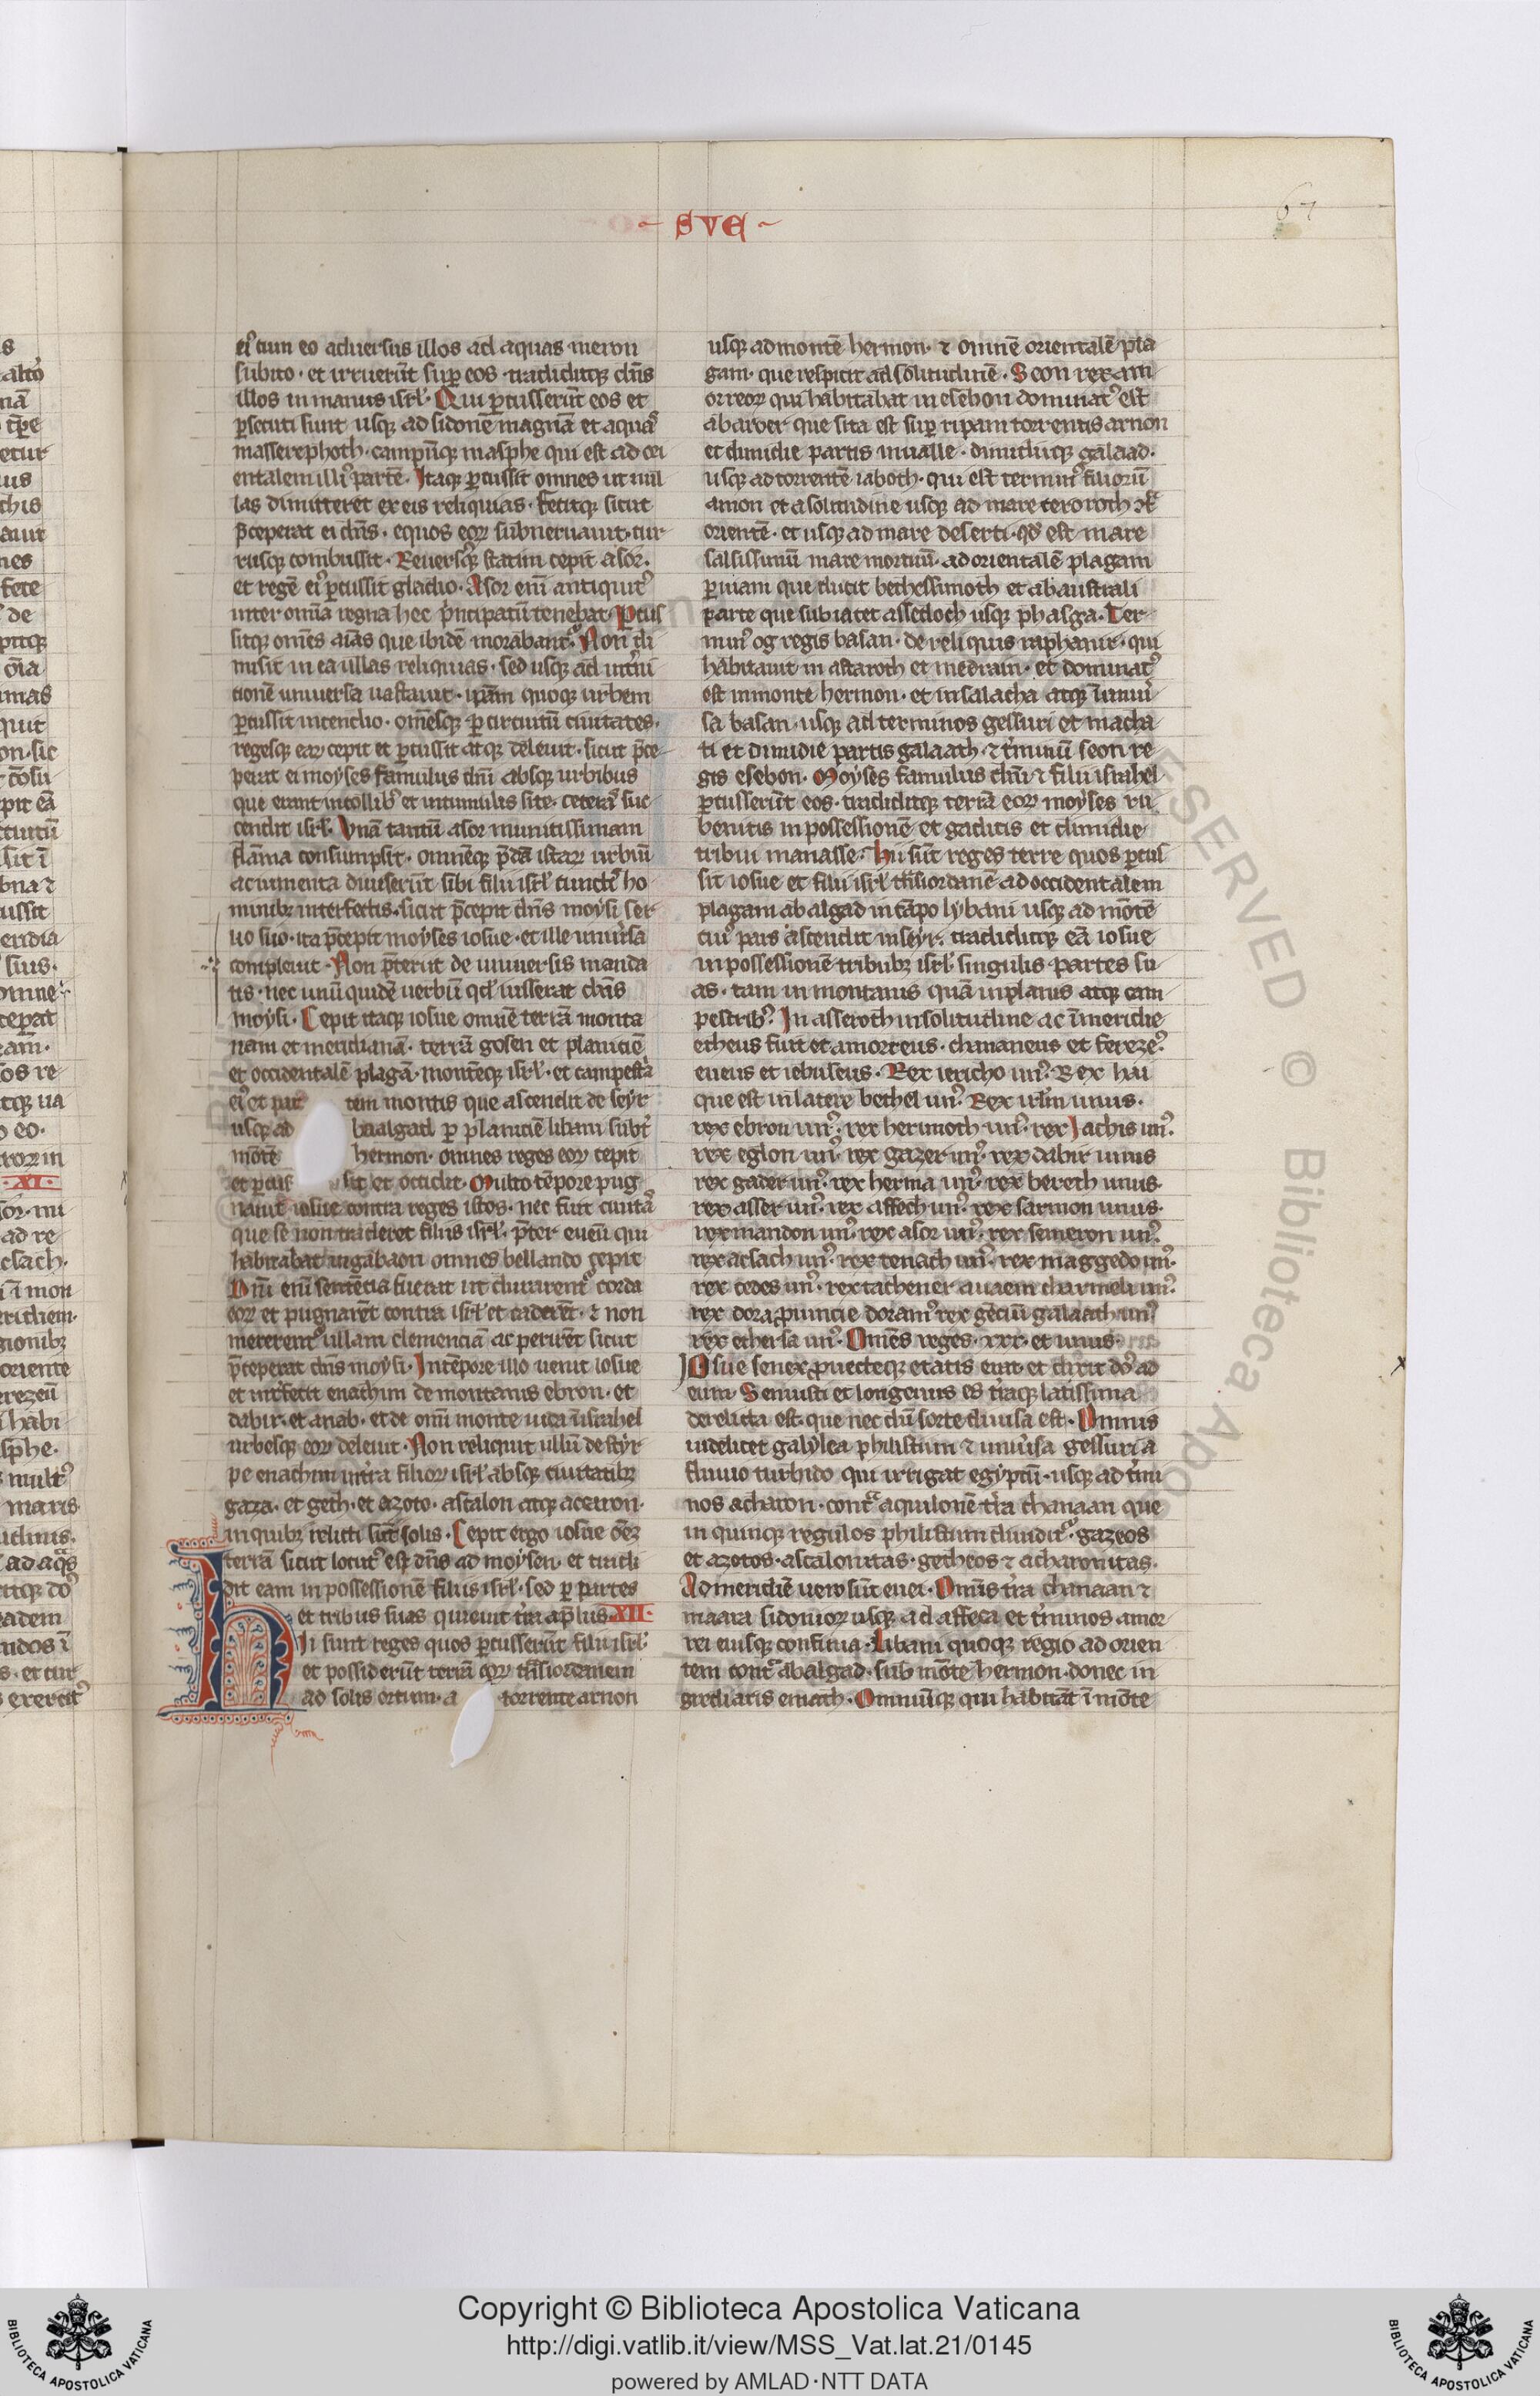 SVE
67
eiꝰ cum eo aduersus illos ad aquas meron
subito · et irruerūt sup eos · tradiditqꝫ dn̄s
illos in manus isrl̓ · Qui p̄cusserūt eos et
p̄secuti sunt usqꝫ ad sidonē magnā et aquas
masserephoth · campūqꝫ masphe qui est ad ori
entalem illiꝰ partē · Itaqꝫ p̄cussit omnes ut nul
las dimitteret ex eis reliquias · fecitqꝫ sicut
p̄ceperat ei dn̄s · equos eoꝝ subneruauit · cur
rusqꝫ combussit · Reuersusqꝫ statim cepit asor ·
et regē eiꝰ p̄cussit gladio · Asor eni antiquitꝰ
inter omīa regna hec p̓ncipatū tenebat · P̄cus
sitqꝫ omēs aīas que ibidē morabant᷑ · Non di
misit in ea ullas reliquias · sed usqꝫ ad int̓ni
cionē uniuersa uastauit · ip̄am quoqꝫ urbem
p̄cussit incendio · om̄esqꝫ p̄ circuitū ciuitates ·
regesqꝫ eaꝝ cepit et p̄cussit atqꝫ deleuit · sicut p̄ce
perat ei moyses famulus dn̄i absqꝫ urbibus
que erant in collibꝰ et in tumulis site · ceteras suc
cendit isrl̓ · Vnā tantū asor munitissimam
flāma consumpsit · omnēqꝫ p̄dā istaꝝ urbiū
ac iumenta diuiserūt sibi filii isrl̓ cunctis ho
minibꝫ interfectis · sicut p̄cepit dn̄s moysi ser
uo suo · ita p̄cepit moyses iosue · et ille uniu̓sa
compleuit · Non p̄teriit de uniuersis manda
tis · nec unū quidē uerbū qd̓ iusserat dn̄s
moysi · Cepit itaqꝫ iosue omnē terrā monta
nam et meridianā · terrā gosen et planiciē
et occidentalē plagā · montēqꝫ isrl̓ · et campest̓a
eiꝰ et par tem montis que ascendit de seyr
usqꝫ ad baalgad p̄ planiciē libani subt̓
monte hermon · omnes reges eoꝝ cepit
et p̄cus sit et occidit · Multo tēpore pug
nauit iosue contra reges istos · nec fuit ciuitas
que se non traderet filiis isrl̓ · p̄ter eueū qui
habitabat in gabaon omnes bellando cepit
Dn̄i eni sentēcia fuerat ut durarent᷑ corda
eoꝝ et pugnarēt contra isrl̓ et caderēt · ⁊ non
mererent᷑ ullam clemenciā ac perirēt sicut
p̄ceperat dn̄s moysi · In tēpore illo uenit iosue
et int̓fecit enachim de montanis ebron · et
dabir · et anab · et de omī monte iuda ⁊ israhel
urbesqꝫ eoꝝ deleuit · Non reliquit ullū de styr
pe enachim int̓ra filioꝝ isrl̓ absqꝫ ciuitatibꝫ
gaza · et geth · et azoto · ascalon atqꝫ accaron ·
in quibꝫ relicti sūt solis · Cepit ergo iosue oēꝫ
terrā sicut locutꝰ est dn̄s ad moysen · et tradi
dit eam in possessionē filiis isrl̓ · sed p̄ partes
et tribus suas quieuit t̓ra a p̄liis XII ·
Hi sunt reges quos p̄cusserūt filii isrl̓
et possiderūt terrā eoꝝ t̓nsiordanem
ad solis ortum · a torrente arnon
usqꝫ ad montē hermon · ⁊ omnē orientalē pla
gam · que respicit ad solitudinē · Seon rex am
orreoꝝ qui habitabat in esebon dominatꝰ est
ab aroer que sita est sup ripam torrentis arnon
et dimidie partis in ualle · dimidiiqꝫ galaad ·
usqꝫ ad torrentē iaboth · qui est terminꝰ filiorū
amon et a solitudine usqꝫ ad mare ceroroth
orientē · et usqꝫ ad mare deserti · qd̓ est mare
salsissimū mare mortuū · ad orientalē plagam
p̄ uiam que ducit bethessimoth et ab australi
parte que subiacet assedoch usqꝫ phasga · Ter
minꝰ og regis basan · de reliquis raphaim · qui
habitauit in astaroth et in edrain · et dominatꝰ
est in monte hermon · et in salacha atqꝫ ī uniu̓
sa basan · usqꝫ ad terminos gessuri et macha
ti et dimidie partis galaath · ⁊ t̓minū seon re
gis esebon · Moyses famulus dn̄i ⁊ filii israhel
p̄cusserūt eos · tradiditqꝫ terrā eoꝝ moyses ru
benitis in possessionē et gaditis et dimidie
tribui manasse · Hii sūt reges terre quos p̄cus
sit iosue et filii isrl̓ t̓nsiordanē ad occidentalem
plagam ab algad in cāpo lybani usqꝫ ad mōtē
cuiꝰ pars ascendit in seyr · tradiditqꝫ eā iosue
in possessionē tribubꝫ isrl̓ singulis partes su
as · tam in montanis quā in planis atqꝫ cam
pestribꝰ · In asseroth in solitudine ac ī meridie
etheus fuit et amorreus · chananeus et ferezeꝰ
eueus et iebuseus · Rex iericho unꝰ · Rex hai
que est in latere bethel unꝰ · Rex irlm̄ unus ·
rex ebron unꝰ · rex herimoth unꝰ · rex lachis unꝰ ·
rex eglon unꝰ · rex gazer unꝰ · rex dabir unus
rex gader unꝰ · rex herma unꝰ · rex bereth unus ·
rex asser unꝰ · rex affech unꝰ · rex sarmon unus ·
rex mandon unꝰ · rex asor unꝰ · rex semeron unꝰ ·
rex acsach unꝰ · rex tenach unꝰ · rex maggedo unꝰ ·
rex cedes unꝰ · rex iachener charmeli unꝰ ·
rex dora ꝓuincie doram · rex gēciū galaath unꝰ
rex thersa unꝰ · Omēs reges · xxx · et unus ·
Iosue senex ꝓuecteqꝫ etatis erat · et dixit dn̄s ad
eum · Senuisti et longeuus es t̓raqꝫ latissima
derelicta est · que nec dū sorte diuisa est · Omnis
uidelicet galylea philistim ⁊ uniu̓sa gessuri a
fluuio turbido qui irrigat egyptū · usqꝫ ad t̓mi
nos acharon · contra aquilonē t̓ra chanaan que
in quinqꝫ regulos philistim diuidit᷑ · gazeos
et azotos · ascalonitas · getheos ⁊ acharonitas ·
Ad meridiē uero sūt euei · Omīs t̓ra chanaan ⁊
maara sidonioꝝ usqꝫ ad affeca et t̓minos amor
rei eiusqꝫ confinia · Libani quoqꝫ regio ad orien
tem contra baalgad · sub mōte hermon · donec in
grediaris emath · Omniūqꝫ qui habitāt ī mōte
Copyright © Biblioteca Apostolica Vaticana
http://digi.vatlib.it/view/MSS_Vat.lat.21/0145
powered by AMLAD·NTT DATA